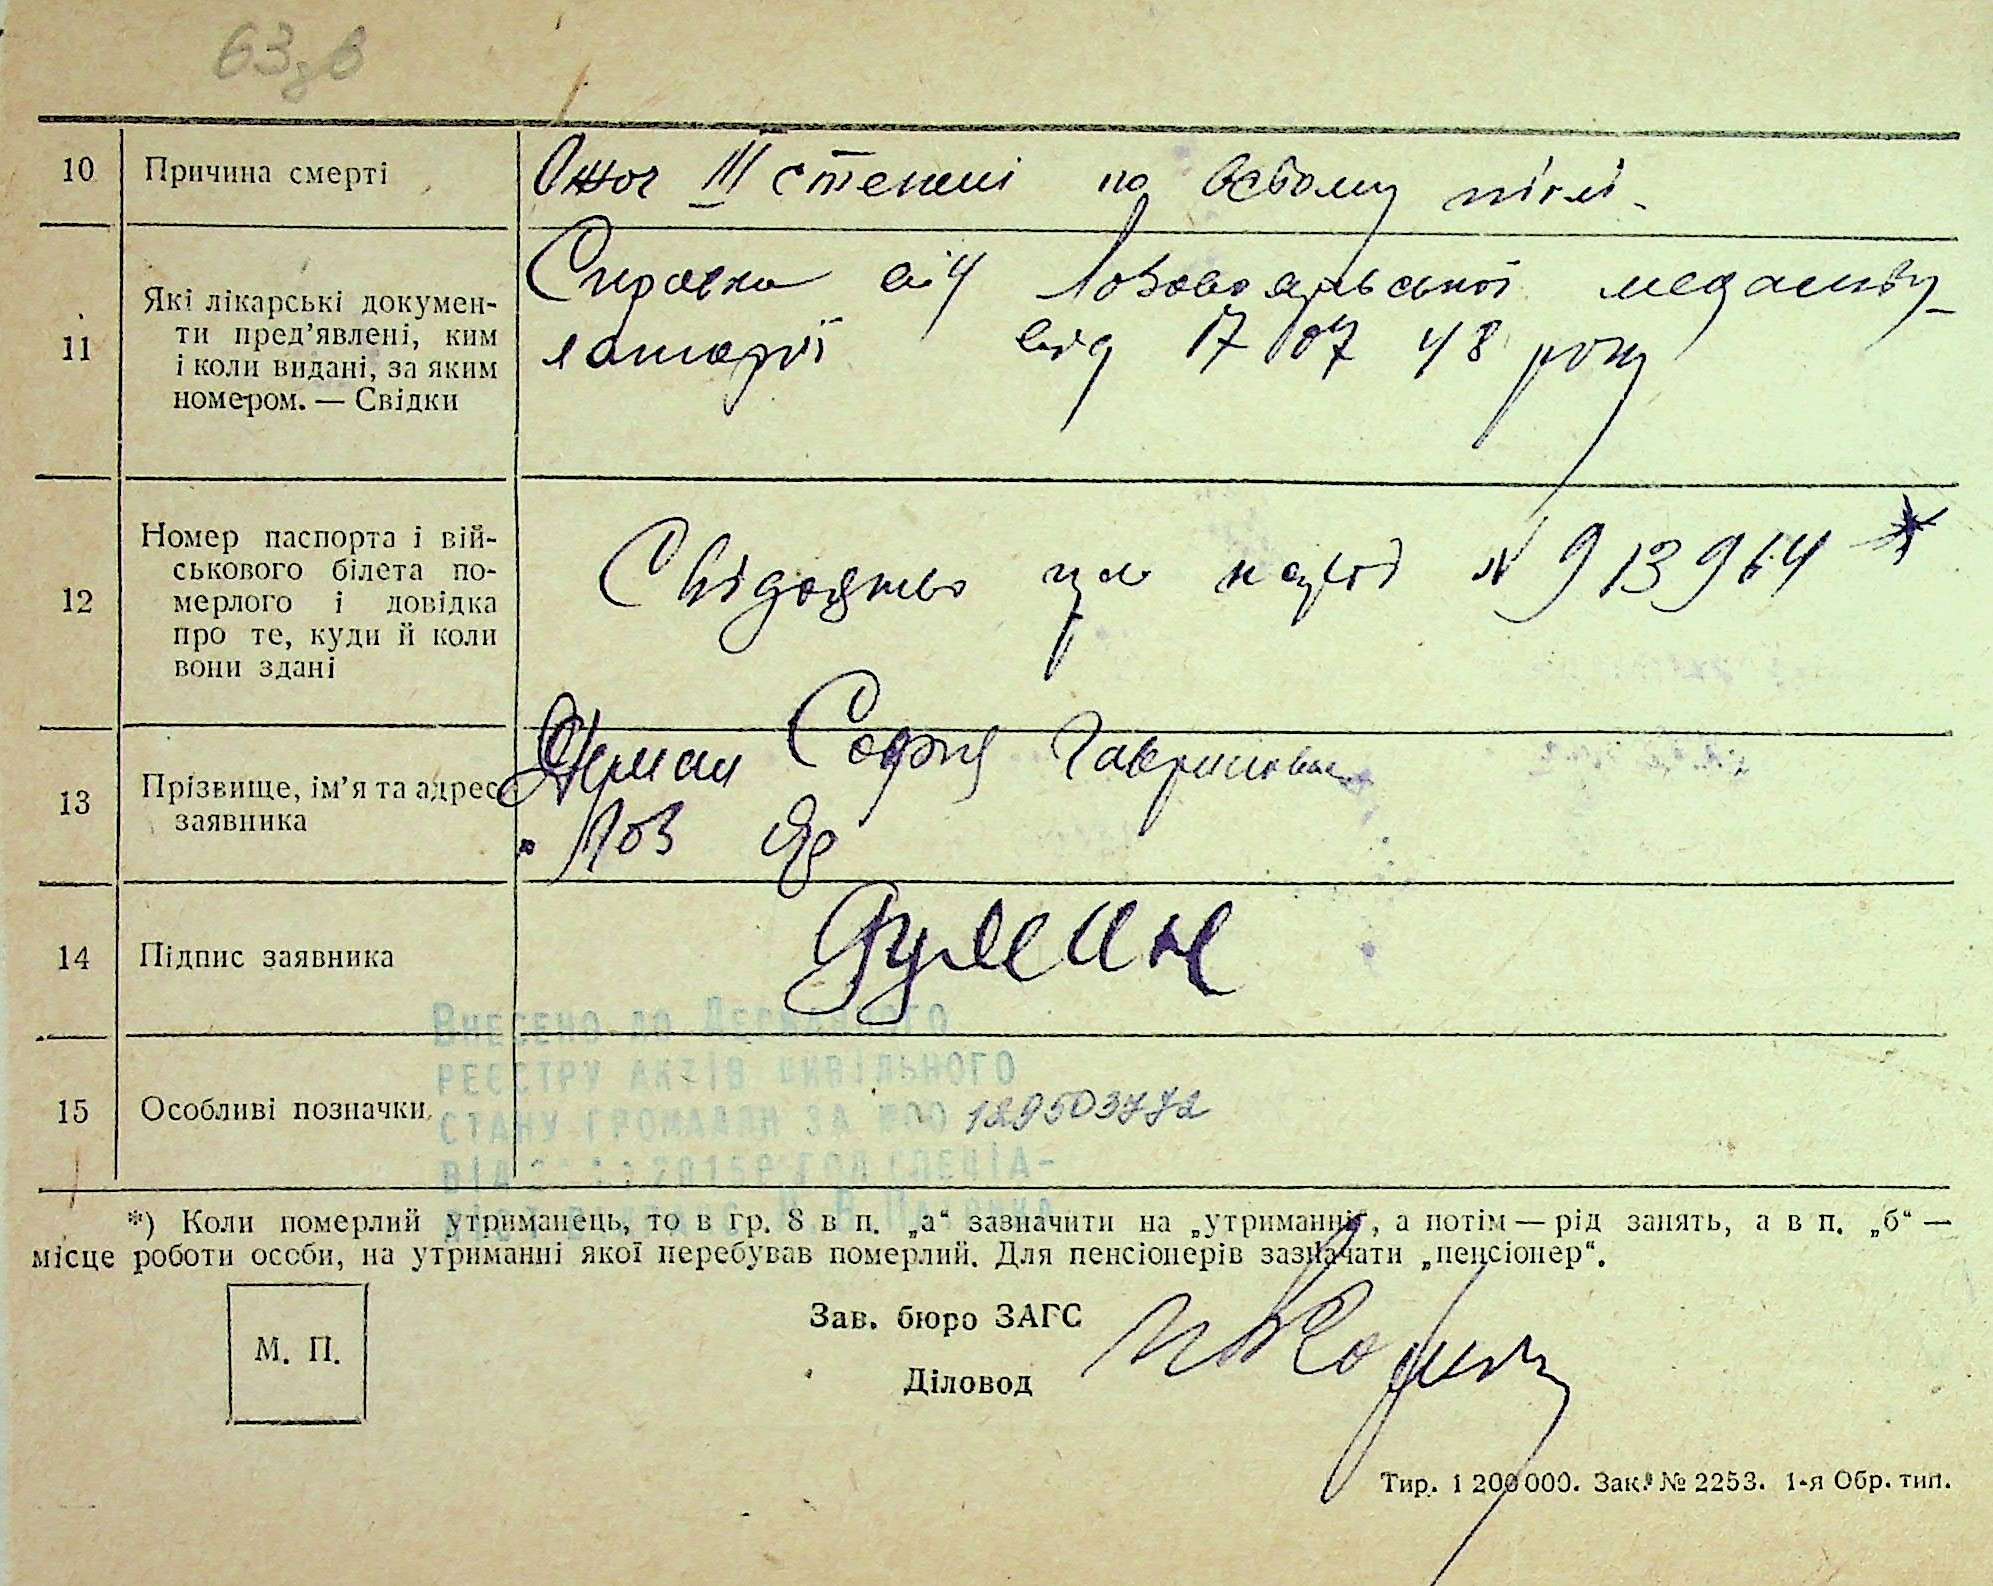 63 зв
10 Причина смерті Ожог III степені по всьому тілі.
11 Які лікарські докумен-
ти пред'явлені, ким
і коли видані, за яким
номером. — Свідки
Справка від Лозовоярської медамбу-
латорії від 17 07 48 року
12 Номер паспорта і вій-
ськового білета по-
мерлого і довідка
про те, куди й коли
вони здані
Свідоцтво про народ № 913964
13 Прізвище, ім'я та адрес
заявника
Софія Гаврилівна
Лоз Яр
14 Підпис заявника
15 Особливі позначки
Внесено до Державного
реєстру актів цивільного
стану громадян за №00 129503772
від 2015р
*) Коли померлий утриманець, то в гр. 8 в п. „а“ зазначити на „утриманні“, а потім — рід занять, а в п. „б“ —
місце роботи особи, на утриманні якої перебував померлий. Для пенсіонерів зазначати „пенсіонер“.
М. П.
Зав. бюро ЗАГС
Діловод
Тир. 1 200 000. Зак. № 2253. 1-я Обр. тип.